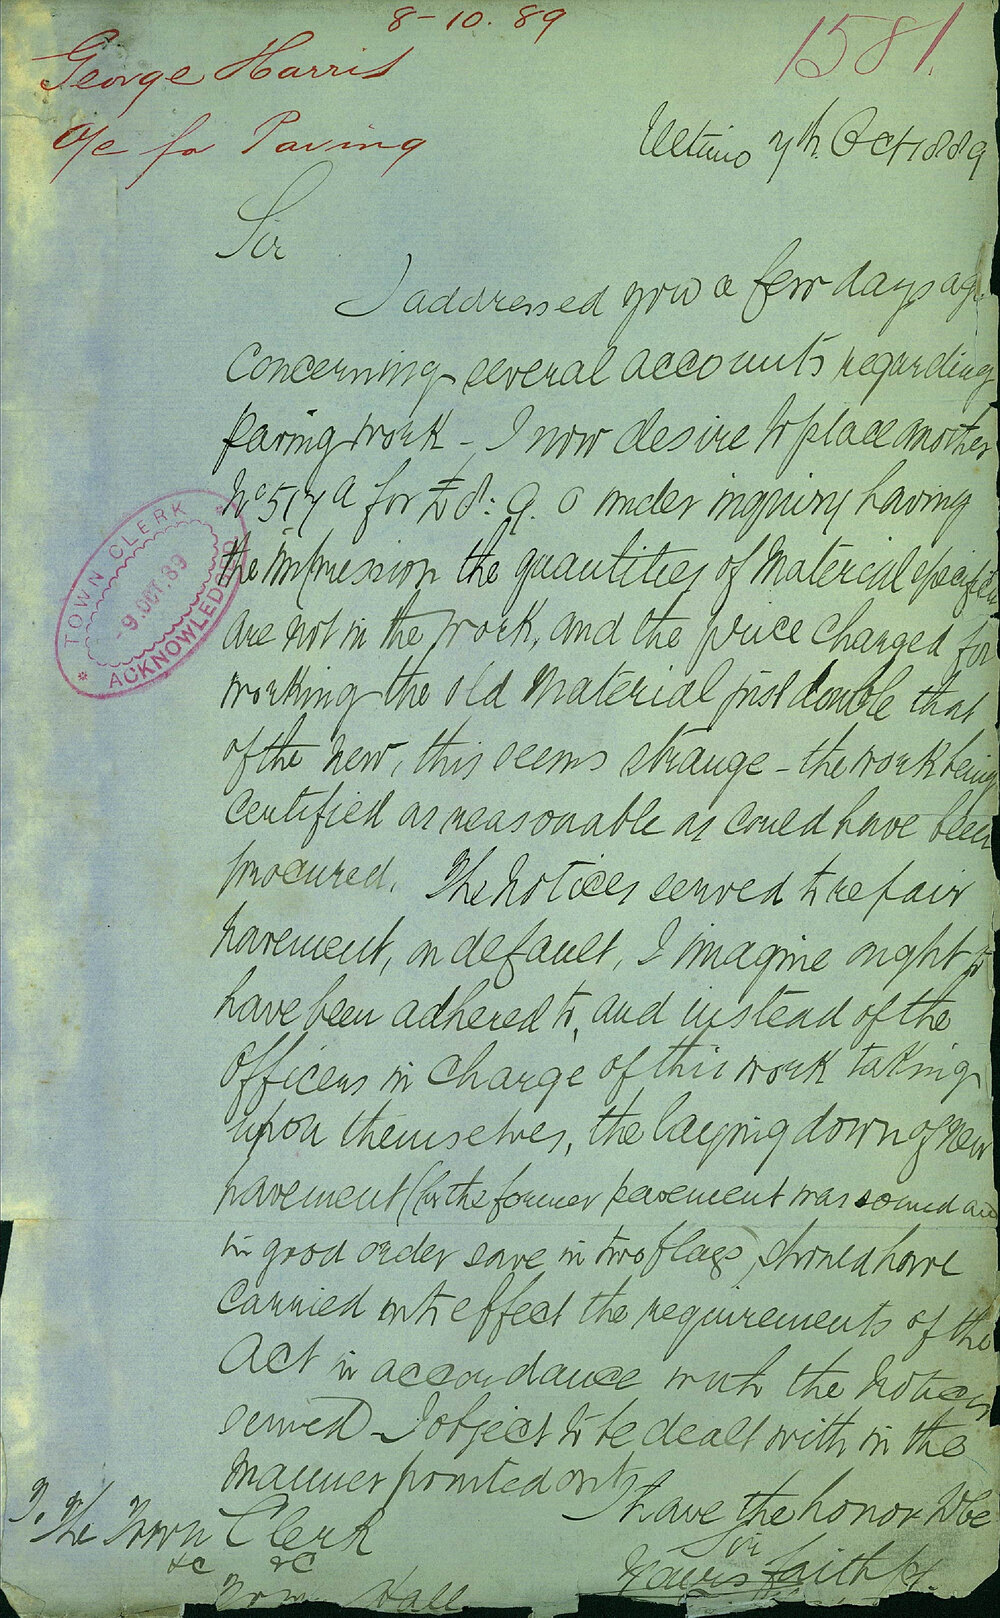 8-10.89
1581.
George Harris
a/c for Paving
Ultimo 7th. Oct 1889
Sir
I addressed you a few days ago
concerning several accounts regarding
paving work - I now desire to place another
No 517a for £8: 9. 0 under inquiry having
the impression the quantities of material specified
are not in the work, and the price charged for
working the old material just double that
of the new, this seems strange - the work being
certified as reasonable as could have been
procured. The notices served to repair
pavement, on default, I imagine ought to
have been adhered to, and instead of the
officers in charge of this work taking
upon themselves, the laying down of new
pavement (for the former pavement was sound and
in good order save in two flags) should have
carried into effect the requirements of the
Act in accordance with the notices
served - I object to be dealt with in the
manner pointed out
I have the honor to be
Sir
Yours faithfy.
To The Town Clerk
&c &c
Town Hall
TOWN CLERK
-9.OCT.89
ACKNOWLEDGED